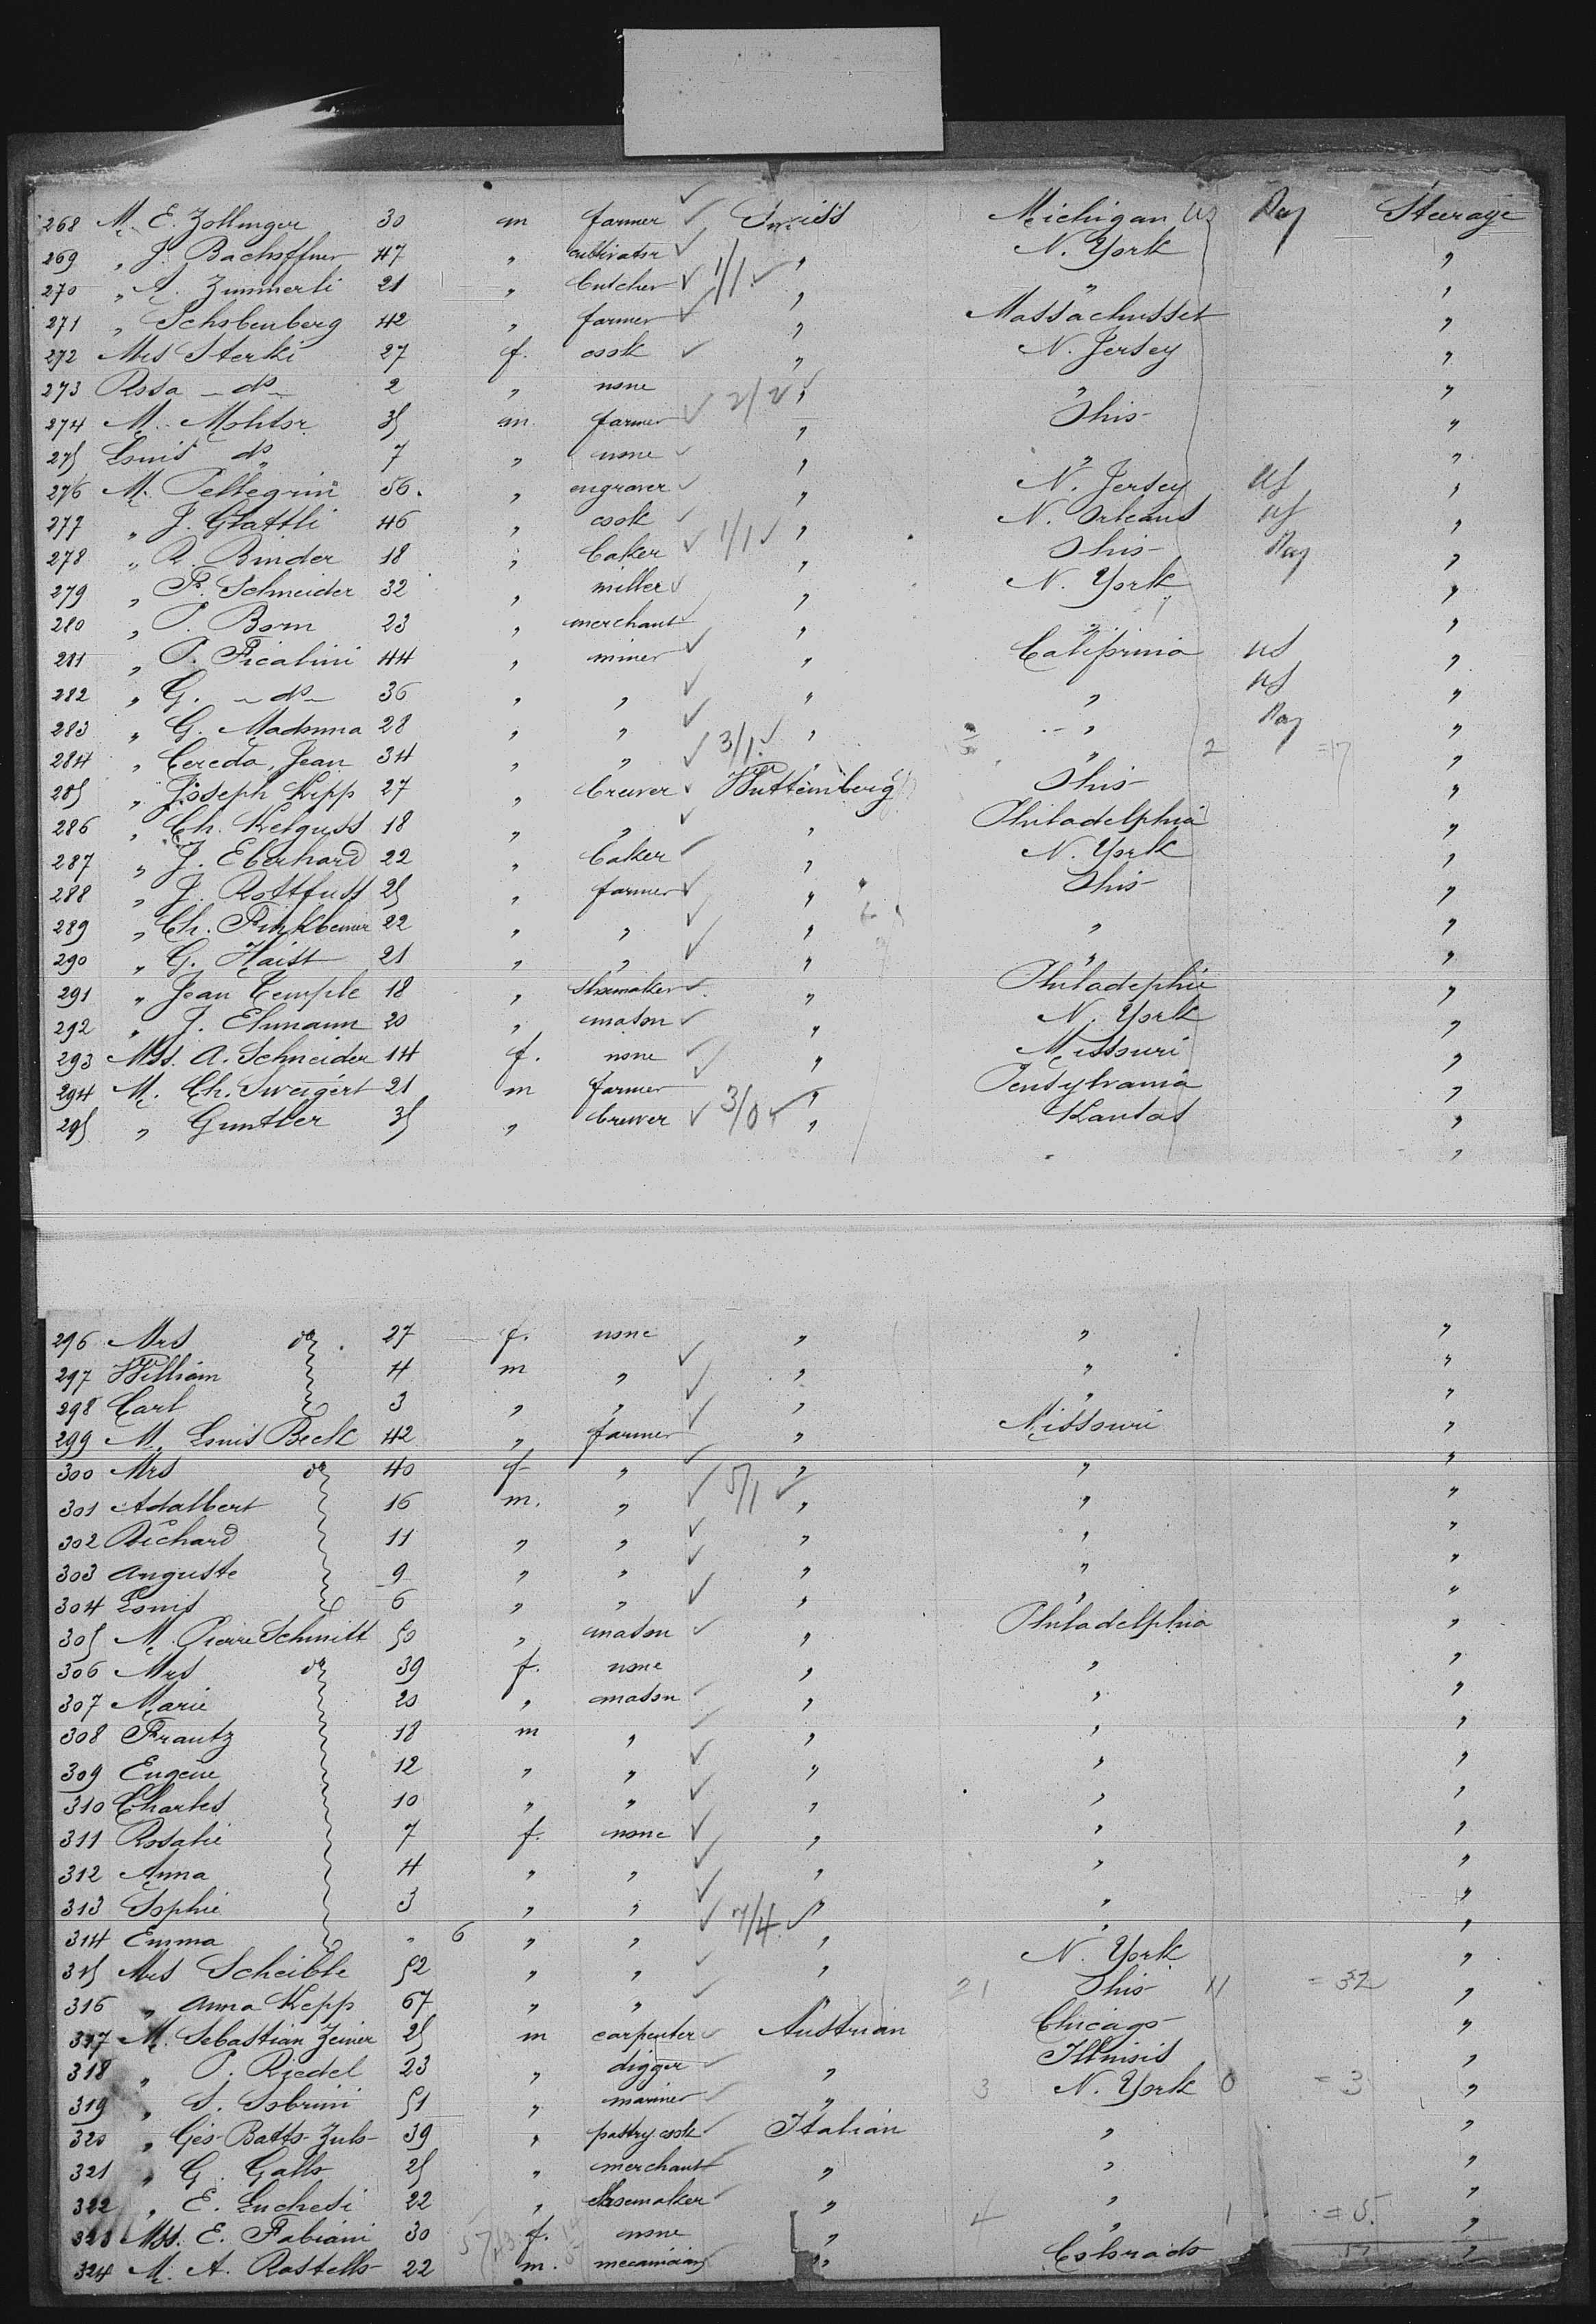 268 M. E. Zollinger 30 m farmer Swiss Michigan US Steerage
269 „ J. Bachoffner 47 „ cultivator „ N. York „
270 „ A. Zimmerli 21 „ butcher 1/1 „ „ „
271 „ Schobenberg 42 „ farmer „ Massachusset „
272 Mrs Sterki 27 f. cook „ N. Jersey „
273 Rosa do 2 „ none 2/2 „ „ „
274 M. Mohtor 35 m. farmer „ Ohio „
275 Louis do 7 „ none „ „ „
276 M. Pellegrini 56. „ engraver „ N. Jersey US „
277 „ J. Glattli 46 „ cook „ N. Orleans US „
278 „ R. Binder 18 „ baker 1/1 „ Ohio „
279 „ F. Schneider 32 „ miller „ N. York „
280 „ P. Born 23 „ merchant „ „ „
281 „ P. Ficalini 44 „ miner „ California US „
282 „ G. do 36 „ „ „ „ US „
283 „ G. Madonna 28 „ „ „ „ „
284 „ Cereda, Jean 34 „ „ 3/1 „ „ 2 =17 „
285 „ Joseph Kepp 27 „ brewer Wuttemberg Ohio „
286 „ Ch. Kelguss 18 „ „ „ Philadelphia „
287 „ J. Eberhard 22 „ baker „ N. York „
288 „ J. Rottfuss 25 „ farmer „ Ohio „
289 „ Ch. Finkbeiner 22 „ „ „ „ „
290 „ G. Haist 21 „ „ „ „ „
291 „ Jean Temple 18 „ shoemaker „ Philadephie „
292 „ J. Ehmann 20 „ mason „ N. York „
293 Mss. A. Schneider 14 f. none „ Missouri „
294 M. Ch. Sweigert 21 m farmer „ Pensylvania „
295 „ Guntler 35 „ brewer 3/0 „ Kansas „
296 Mrs do 27 f. none „ „ „
297 William 4 m „ „ „ „
298 Carl 3 „ „ „ „ „
299 M. Louis Beck 42 „ farmer „ Missouri „
300 Mrs do 40 f „ „ „ „
301 Adalbert 16 m. „ 5/1 „ „ „
302 Richard 11 „ „ „ „ „
303 Auguste 9 „ „ „ „ „
304 Louis 6 „ „ „ „ „
305 M. Pierre Schmitt 50 „ mason „ Philadelphia „
306 Mrs do 39 f. none „ „ „
307 Marie 20 „ mason „ „ „
308 Frantz 18 m „ „ „ „
309 Eugene 12 „ „ „ „ „
310 Charles 10 „ „ „ „ „
311 Rosalie 7 f. none „ „ „
312 Anna 4 „ „ „ „ „
313 Sophie 3 „ „ „ „ „
314 Emma „ 6 „ „ 7/4 „ „ „
315 Mrs Scheible 52 „ „ „ N. York „
316 „ Anna Kepp 67 „ „ „ 21 Ohio 11 = 32 „
317 M. Sebastian Zeiner 25 m carpenter Austrian Chicago „
318 „ P. Riedel 23 „ digger „ Illinois „
319 „ S. Sobrini 51 „ mariner „ 3 N. York 0 = 3 „
320 „ Geo-Batto-Zulo 39 „ pastry cook Italian „ „
321 „ G. Gallo 25 „ merchant „ „ „
322 „ E. Luchesi 22 „ Shoemaker „ „ „
323 Mss. E. Fabiani 30 f. none „ 4 „ 1 = 5. „
324 M. A. Rastello 22 m. mecanician „ Colorado „